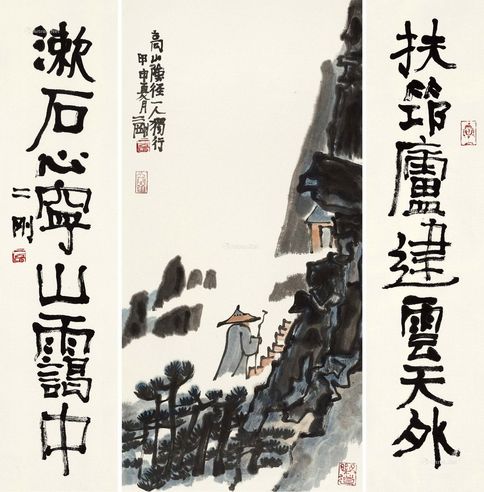 扶筇廬建雲天外
高山險径一人獨行
甲申月二剛
漱石心寧山靄中
二剛